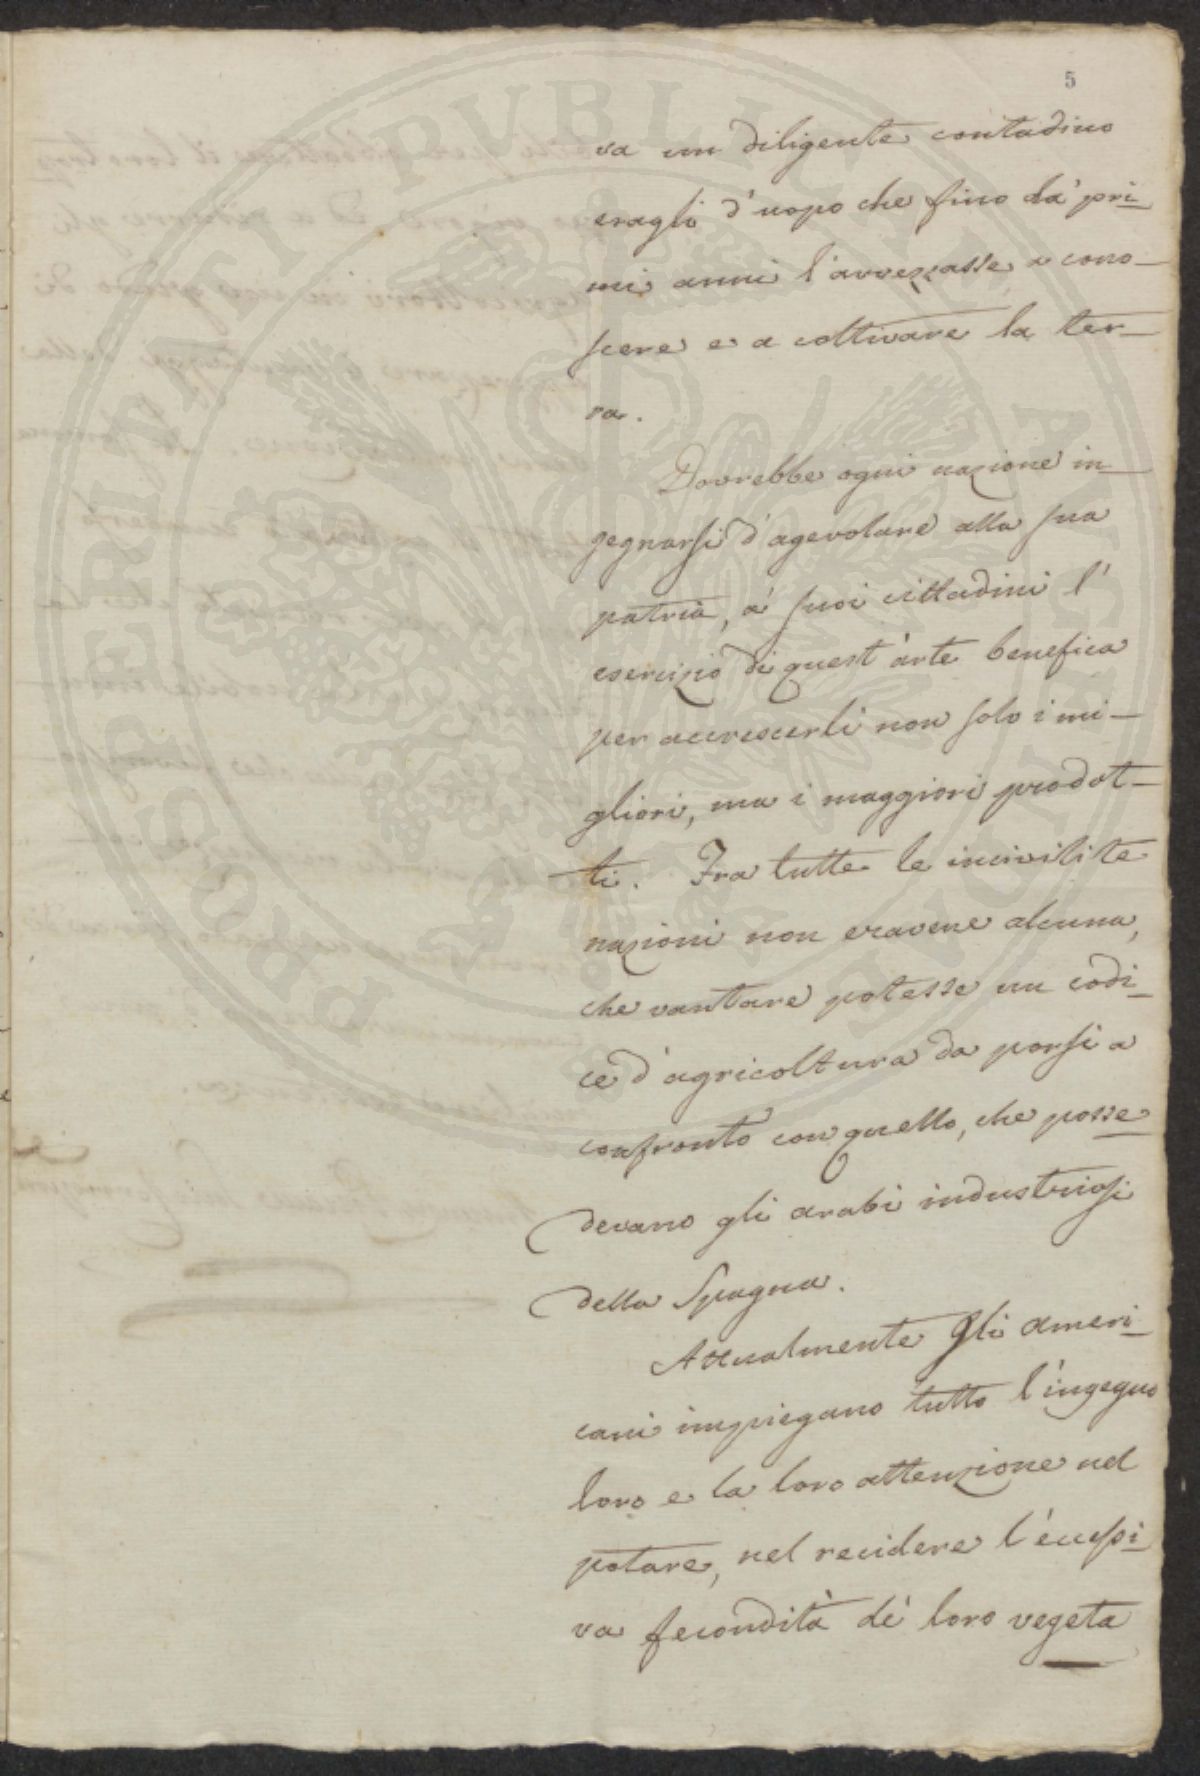 5
va un diligente contadino
eragli d'uopo che fino da' pri_
mi anni l'avvezzasse a cono_
scere e a coltivare la ter_
ra.
Dovrebbe ogni nazione in_
gegnarsi d'agevolare alla sua
patria, a' suoi cittadini l'
esercizio di quest'arte benefica
per accrescerli non solo i mi_
gliori, ma i maggiori prodot_
ti. Fra tutte le incivilite
nazioni non eravene alcuna,
che vantare potesse un codi_
ce d'agricoltura da porsi a
confronto con quello, che posse_
devano gli arabi industriosi
della Spagna.
Attualmente gli ameri_
cani impiegano tutto l'ingegno
loro e la loro attenzione nel
potare, nel recidere l'eccessi_
va fecondità de' loro vegeta_